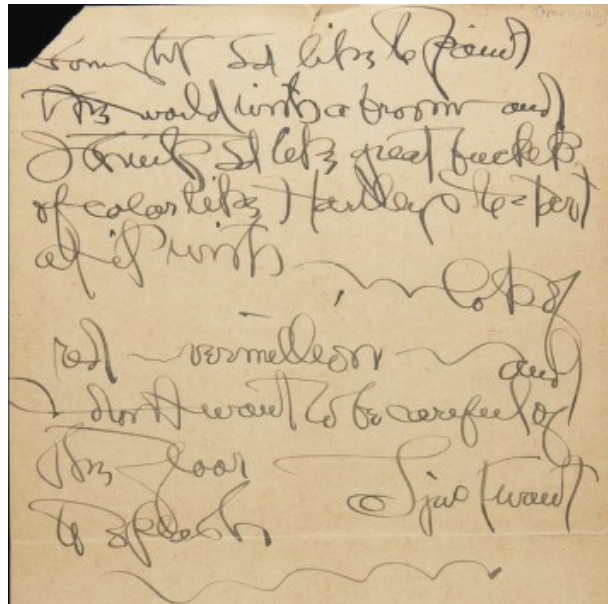 Tonight I'd like to paint
the world with a broom and
I think I'd like great buckets
of color like Hartley's to start
off with
lots of
red vermillion and
I don't want to be careful of
the floor
I just want
to splash